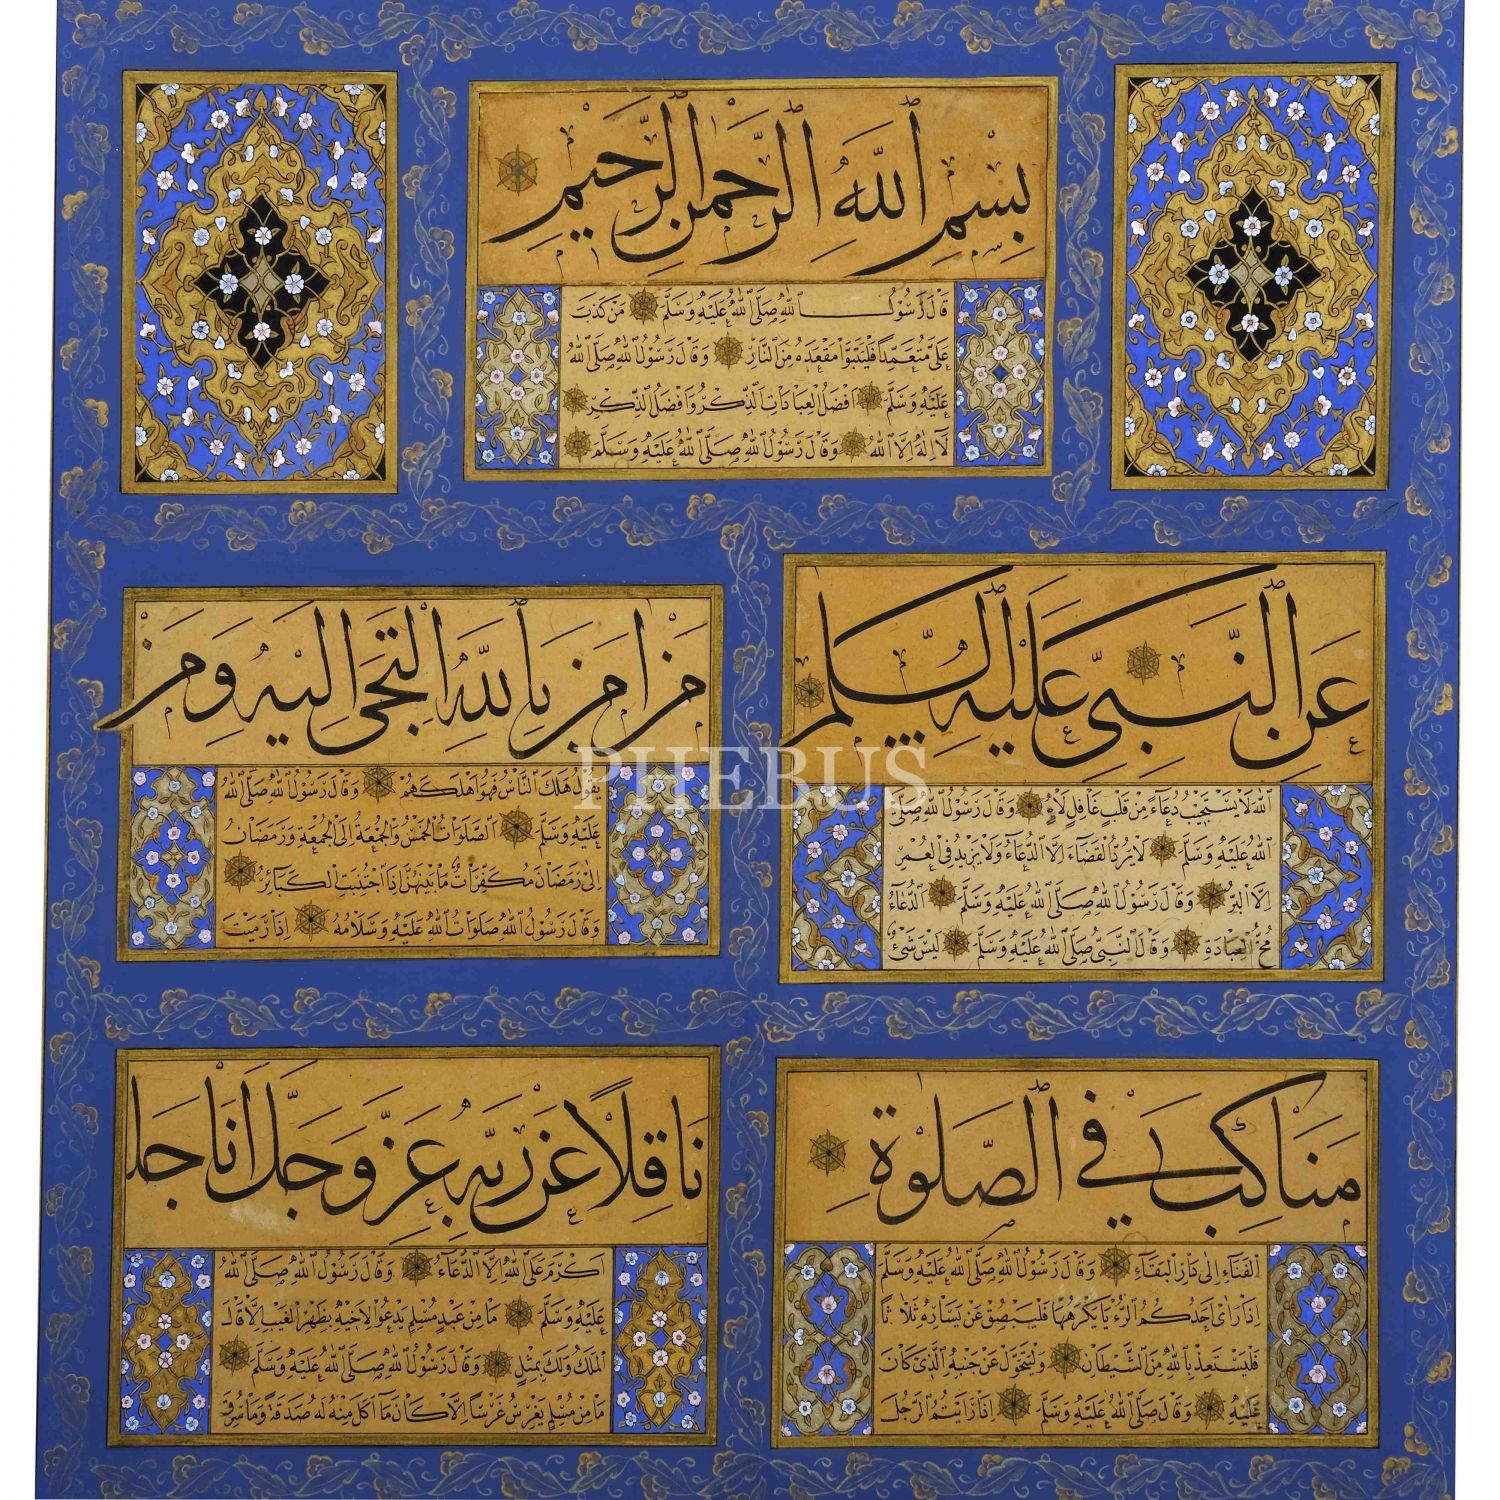 بِسْمِ اللَّهِ الرَّحْمٰنِ الرَّحِيمِ
قَالَ رَسُولُ اللهِ صَلَّى اللهُ عَلَيْهِ وَسَلَّمَ مَنْ كَذَبَ
عَلَيَّ مُتَعَمِّدًا فَلْيَتَبَوَّأْ مَقْعَدَهُ مِنَ النَّارِ وَقَالَ رَسُولُ اللهِ صَلَّى اللهُ
عَلَيْهِ وَسَلَّمَ اَفْضَلُ الْعِبَادَاتِ الذِّكْرُ وَاَفْضَلُ الذِّكْرِ
لَا اِلٰهَ اِلَّا اللهُ وَقَالَ رَسُولُ اللهِ صَلَّى اللهُ عَلَيْهِ وَسَلَّمَ
عَنِ النَّبِيِّ عَلَيْهِ السَّلَمُ
اللهَ لَا يَسْتَجِيبُ دُعَاءً مِنْ قَلْبٍ غَافِلٍ لَاهٍ وَقَالَ رَسُولُ اللهِ صَلَّى
اللهُ عَلَيْهِ وَسَلَّمَ لَا يَرُدُّ الْقَضَاءَ اِلَّا الدُّعَاءُ وَلَا يَزِيدُ فِى الْعُمْرِ
اِلَّا الْبِرُّ وَقَالَ رَسُولُ اللهِ صَلَّى اللهُ عَلَيْهِ وَسَلَّمَ الدُّعَاءُ
مُخُّ الْعِبَادَةِ وَقَالَ النَّبِىُّ صَلَّى اللهُ عَلَيْهِ وَسَلَّمَ لَيْسَ شَىْءٌ
مَنْ اٰمَنَ بِاللهِ الْتَجَى اِلَيْهِ وَمَنْ
يَقُولُ هَلَكَ النَّاسُ فَهُوَ اَهْلَكَهُمْ وَقَالَ رَسُولُ اللهِ صَلَّى اللهُ
عَلَيْهِ وَسَلَّمَ الصَّلَوَاتُ الْخَمْسُ وَالْجُمْعَةُ اِلَى الْجُمْعَةِ وَرَمَضَانُ
اِلٰى رَمَضَانَ مُكَفِّرَاتٌ مَا بَيْنَهُنَّ اِذَا اجْتُنِبَتِ الْكَبَائِرُ
وَقَالَ رَسُولُ اللهِ صَلَوَاتُ اللهِ عَلَيْهِ وَسَلَامُهُ اِذَا رَمَيْتَ
مَنَاكِبَ فِى الصَّلٰوةِ
الْفَنَاءِ اِلٰى دَارِ الْبَقَاءِ وَقَالَ رَسُولُ اللهِ صَلَّى اللهُ عَلَيْهِ وَسَلَّمَ
اِذَا رَاٰى اَحَدُكُمُ الرُّءْيَا يَكْرَهُهَا فَلْيَبْصُقْ عَنْ يَسَارِهِ ثَلَاثًا
فَلْيَسْتَعِذْ بِاللهِ مِنَ الشَّيْطَانِ وَلْيَتَحَوَّلْ عَنْ جَنْبِهِ الَّذِى كَانَ
عَلَيْهِ وَقَالَ صَلَّى اللهُ عَلَيْهِ وَسَلَّمَ اِذَا رَاَيْتُمُ الرَّجُلَ
نَاقِلًا عَنْ رَبِّهِ عَزَّ وَجَلَّ اَنَا جَل
اَكْرَمَ عَلَى اللهِ اِلَّا الدُّعَاءُ وَقَالَ رَسُولُ اللهِ صَلَّى اللهُ
عَلَيْهِ وَسَلَّمَ مَا مِنْ عَبْدٍ مُسْلِمٍ يَدْعُو لِاَخِيهِ بِظَهْرِ الْغَيْبِ اِلَّا قَالَ
الْمَلَكُ وَلَكَ بِمِثْلٍ وَقَالَ رَسُولُ اللهِ صَلَّى اللهُ عَلَيْهِ وَسَلَّمَ
مَا مِنْ مُسْلِمٍ يَغْرِسُ غَرْسًا اِلَّا كَانَ مَا اُكِلَ مِنْهُ لَهُ صَدَقَةً وَمَا سُرِقَ
PHEBUS